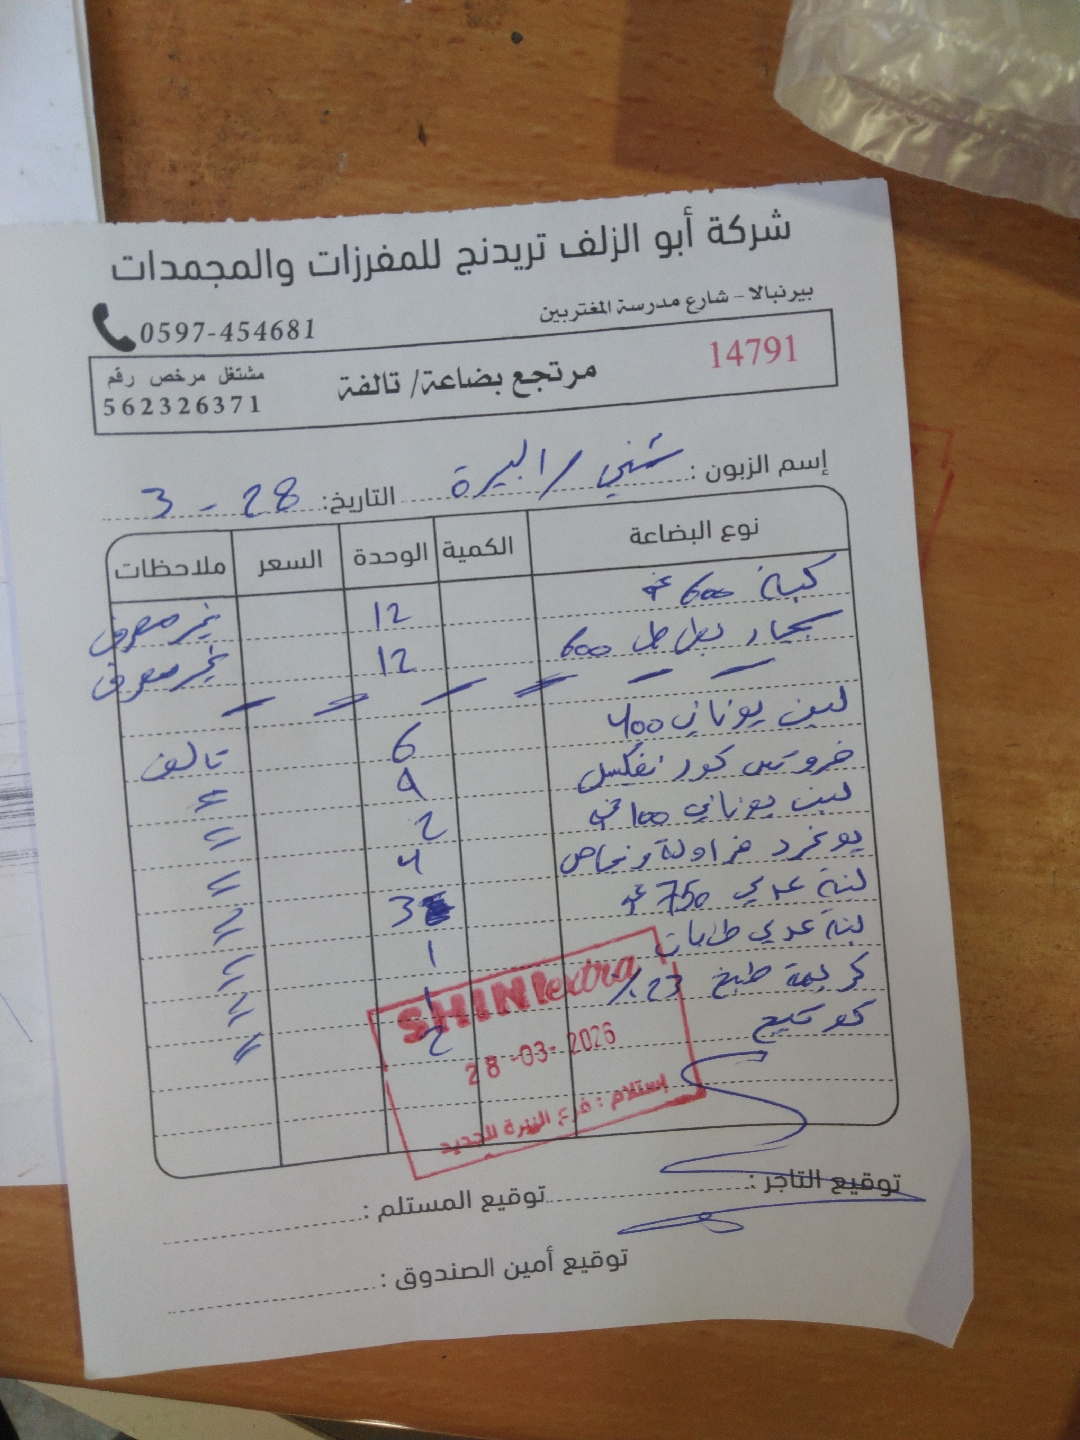 شركة أبو الزلف تريدنج للمفرزات والمجمدات
بيرنبالا - شارع مدرسة المغتربين
0597-454681
14791
مرتجع بضاعة/ تالفة
مشتغل مرخص رقم
562326371
إسم الزبون : شني / البيرة التاريخ: 28 - 3
نوع البضاعة الكمية الوحدة السعر ملاحظات
كبة 600 غم 12
600 12
لبن يوناني 400 6 تالف
9 "
لبن يوناني 100 غم 2 "
فراولة ونجاص 4 "
لبنة عربي 750 غم 3 "
لبنة عربي طابات 1 "
كريمة طبخ 23٪ 1 "
كوتيج 2 "
SHINI extra
28-03-2026
إستلام : فرع البيرة الجديد
توقيع التاجر :
توقيع المستلم :
توقيع أمين الصندوق :